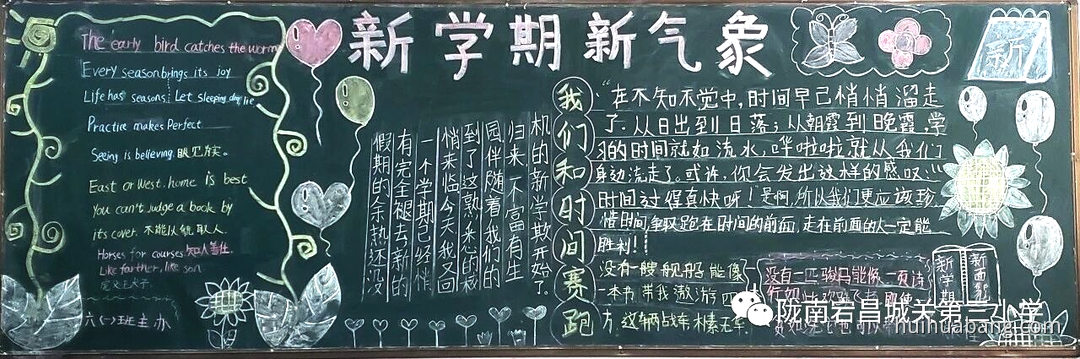 新学期新气象
The early bird catches the worm
Every season brings its joy
Life has seasons. Let sleeping dog lie
Practice makes Perfect
Seeing is believing. 眼见为实。
East or West. home is best
You can't judge a book by
its cover. 不能以貌取人。
Horses for courses 知人善任
Like farther, like son
六(一)班主办
假期的余热还没
有完全褪去新的
一个学期已经悄
悄来临今天我又回
到了这熟悉的校
园伴随着我们的
归来一个富有生
机的新学期开始了.
我们和时间赛跑
“在不知不觉中,时间早已悄悄溜走
了.从日出到日落;从朝霞到晚霞.学
习的时间就如流水,哗啦啦就从我们
身边流走了。或许,你会发出这样的感叹:“
时间过得真快呀!是啊,所以我们更应该珍
惜时间,争取跑在时间的前面,走在前面的人一定能
胜利!!
没有一艘舰船能像
一本书带我遨游四
方.这辆战车朴素无华
没有一匹骏马能像一页诗
行如此
新学期
新面貌
陇南宕昌城关第三小学
huihuabang.com